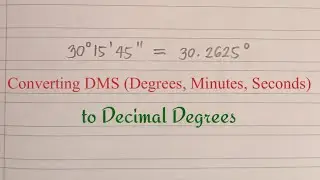 30°15'45" = 30.2625°
Converting DMS (Degrees, Minutes, Seconds)
to Decimal Degrees